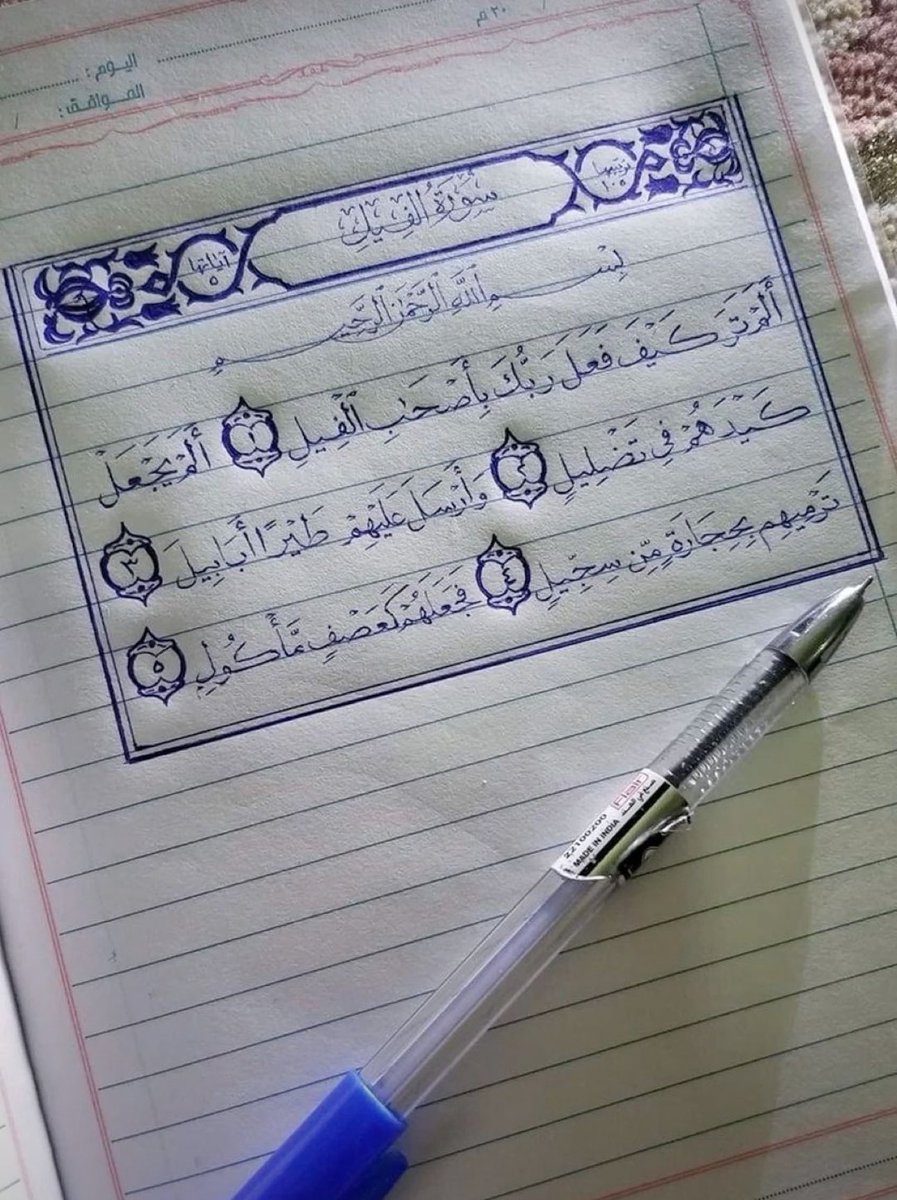 ٢٠ م / /
اليوم :
الموافق : /
ترتيبها ١٠٥
سُورَةُ الفِيلِ
آياتها ٥
بِسْمِ اللَّهِ الرَّحْمَٰنِ الرَّحِيمِ
أَلَمْ تَرَ كَيْفَ فَعَلَ رَبُّكَ بِأَصْحَٰبِ الْفِيلِ ١ أَلَمْ يَجْعَلْ
كَيْدَهُمْ فِي تَضْلِيلٍ ٢ وَأَرْسَلَ عَلَيْهِمْ طَيْرًا أَبَابِيلَ ٣
تَرْمِيهِم بِحِجَارَةٍ مِّن سِجِّيلٍ ٤ فَجَعَلَهُمْ كَعَصْفٍ مَّأْكُولٍ ٥
Flair
صنع في الهند
22100200
MADE IN INDIA